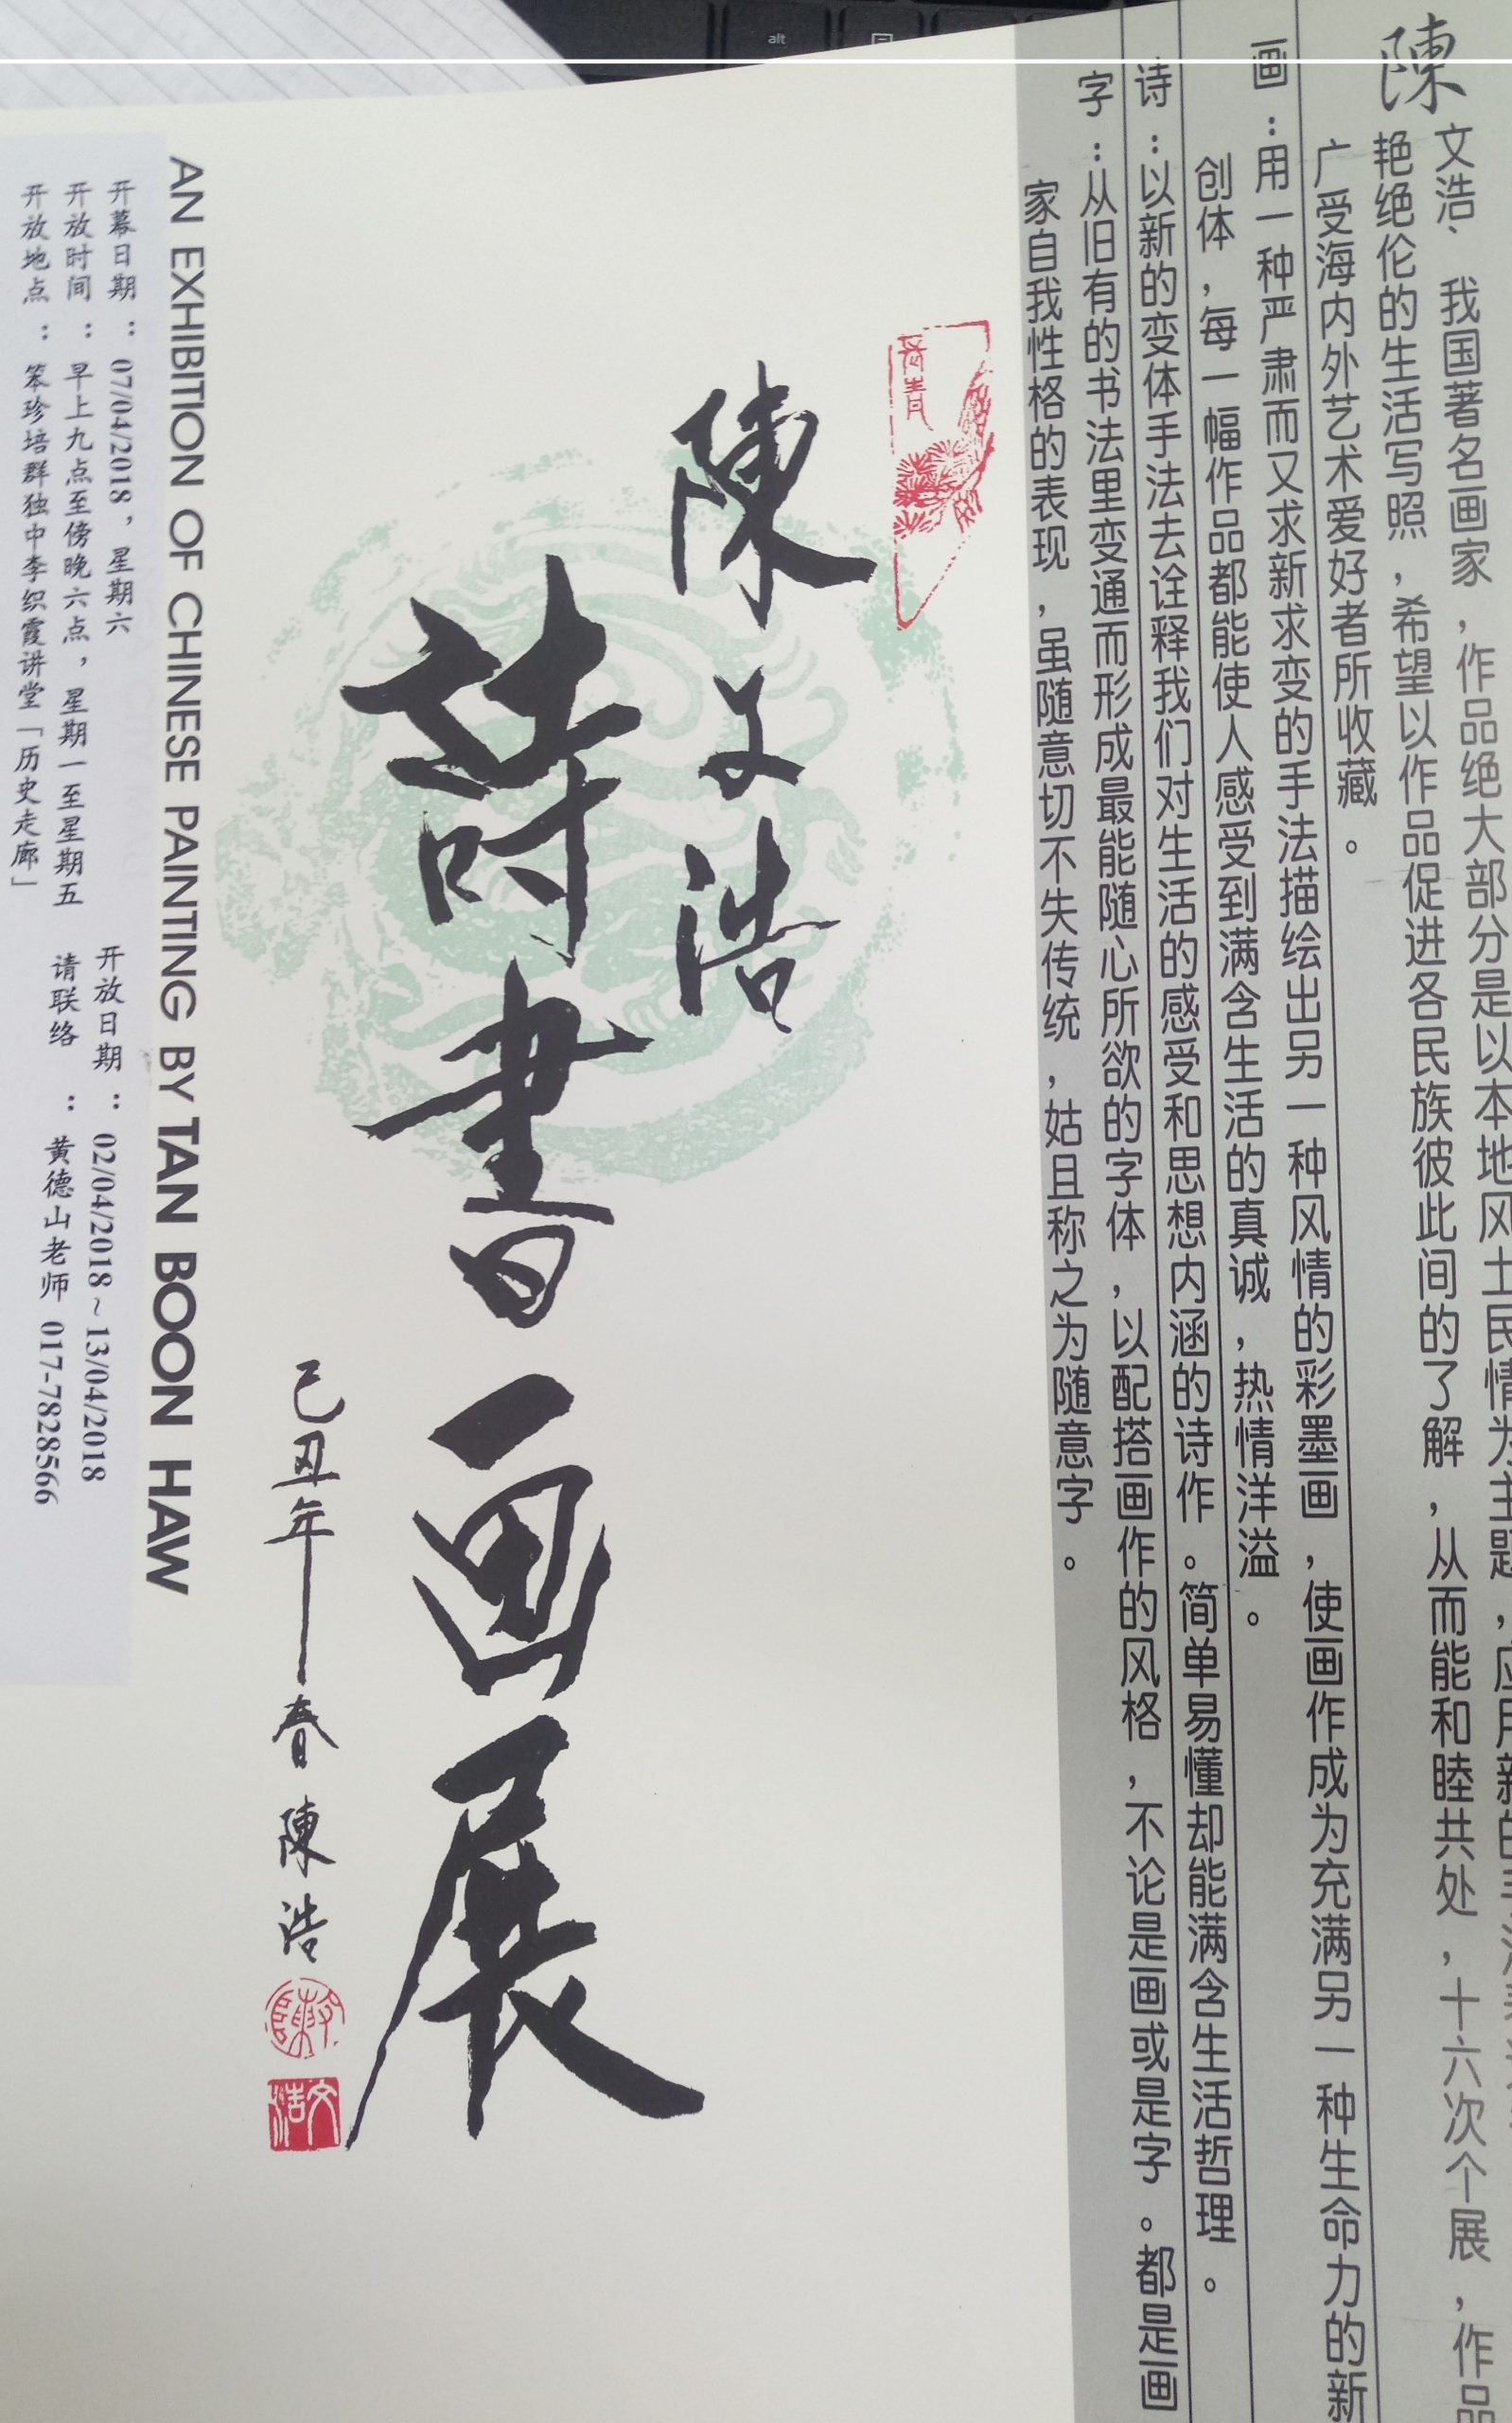 陳文浩、我国著名画家，作品绝大部分是以本地风土民情为主题，应用新的手法
艳绝伦的生活写照，希望以作品促进各民族彼此间的了解，从而能和睦共处，十六次个展，作品
广受海内外艺术爱好者所收藏。
画：用一种严肃而又求新求变的手法描绘出另一种风情的彩墨画，使画作成为充满另一种生命力的新
创体，每一幅作品都能使人感受到满含生活的真诚，热情洋溢。
诗：以新的变体手法去诠释我们对生活的感受和思想内涵的诗作。简单易懂却能满含生活哲理。
字：从旧有的书法里变通而形成最能随心所欲的字体，以配搭画作的风格，不论是画或是字。都是画
家自我性格的表现，虽随意切不失传统，姑且称之为随意字。
陳文浩
詩書画展
己丑年春 陳浩
文浩
AN EXHIBITION OF CHINESE PAINTING BY TAN BOON HAW
开幕日期：07/04/2018，星期六
开放日期：02/04/2018~13/04/2018
开放时间：早上九点至傍晚六点，星期一至星期五
请联络：黄德山老师 017-7828566
开放地点：笨珍培群独中李织霞讲堂「历史走廊」
alt